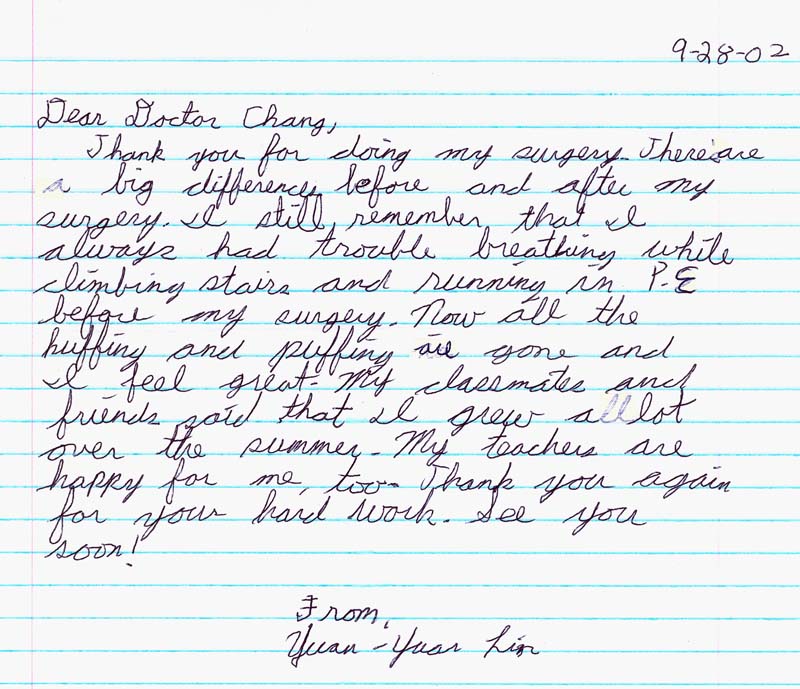 9-28-02
Dear Doctor Chang,
Thank you for doing my surgery. There's are
a big difference, before and after my
surgery. I still remember that I
always had trouble breathing while
climbing stairs and running in P.E
before my surgery. Now all the
huffing and puffing are gone and
I feel great. My classmates and
friends said that I grew alllot
over the summer. My teachers are
happy for me, too. Thank you again
for your hard work. See you
soon!
From,
Yuan-Yuan Lin